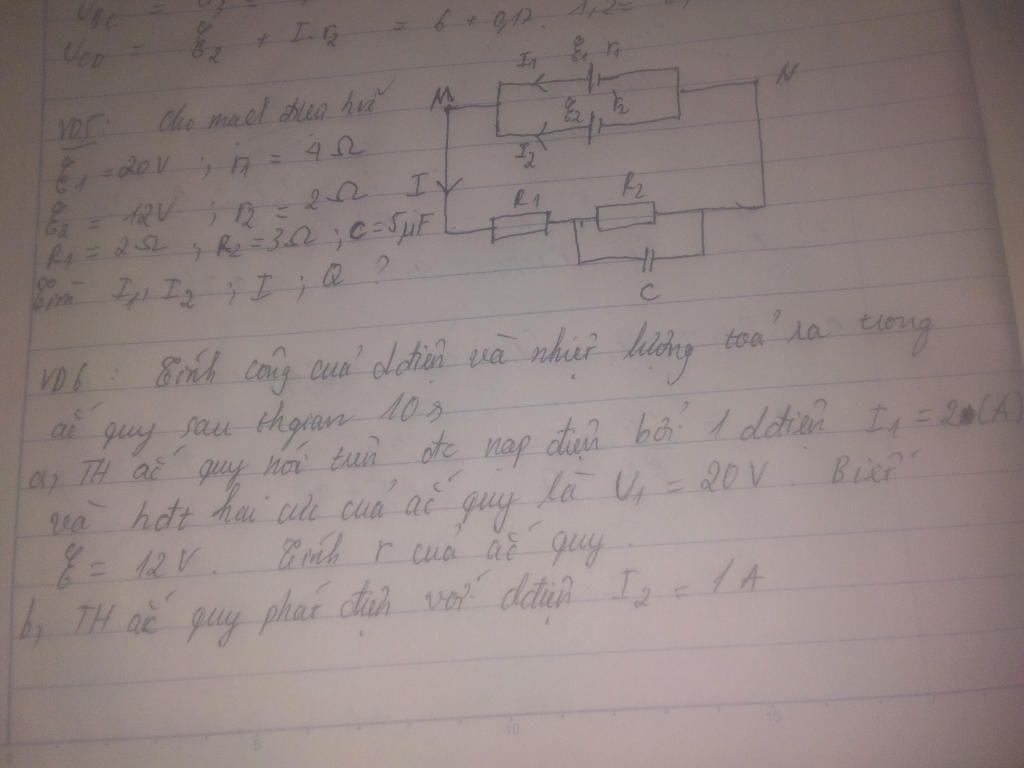 UCD = ℰ2 + I.r2 = 6 + 0,12. 1,2 =
VD5: Cho mạch điện hvẽ
ℰ1 = 20V ; r1 = 4Ω
ℰ2 = 12V ; r2 = 2Ω
R1 = 2Ω ; R2 = 3Ω ; C = 5μF
Tìm I1, I2 ; I ; Q ?
M
I1
ℰ1
r1
N
ℰ2
r2
I2
I
R1
R2
C
VD6 : Tính công của dđiện và nhiệt lượng toả ra trong
ắc quy sau thgian 10s
a, TH ắc quy nói trên đc nạp điện bởi 1 dđiện I1 = 2 (A)
và hđt hai cực của ắc quy là U1 = 20V . Biết
ℰ = 12V. Tính r của ắc quy.
b, TH ắc quy phát điện với dđiện I2 = 1A
5
10
15